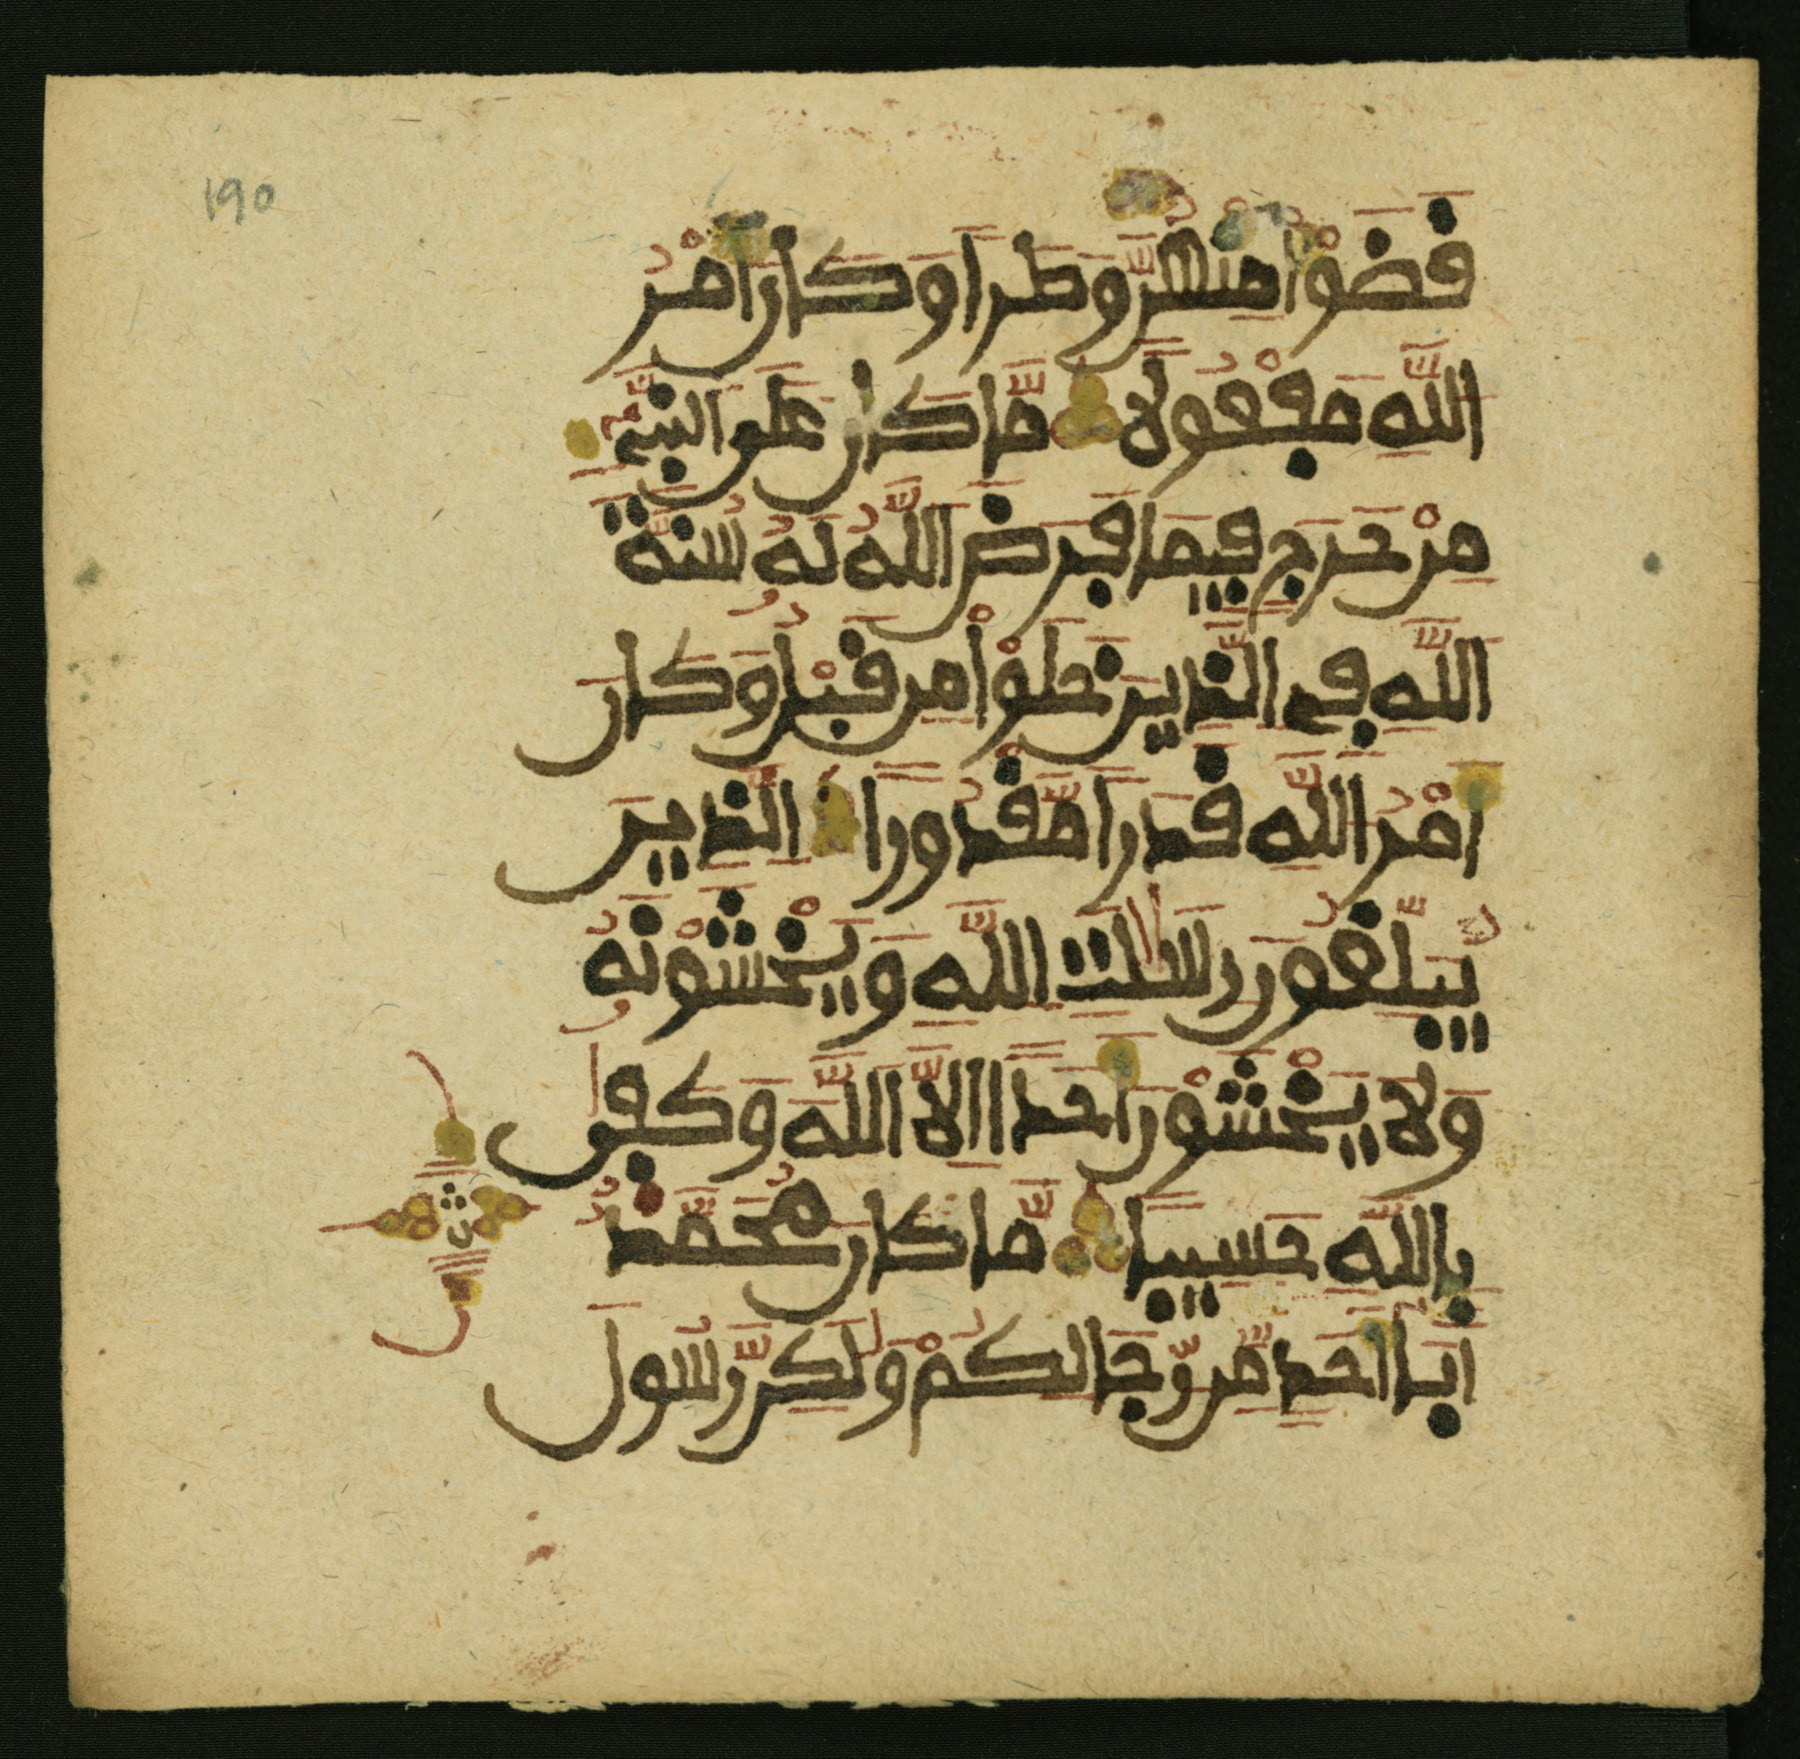 190
قَضَوْا مِنْهُنَّ وَطَرًا وَكَانَ أَمْرُ
اللَّهِ مَفْعُولًا مَّا كَانَ عَلَى النَّبِيِّ
مِنْ حَرَجٍ فِيمَا فَرَضَ اللَّهُ لَهُ سُنَّةَ
اللَّهِ فِي الَّذِينَ خَلَوْا مِن قَبْلُ وَكَانَ
أَمْرُ اللَّهِ قَدَرًا مَّقْدُورًا الَّذِينَ
يُبَلِّغُونَ رِسَٰلَٰتِ اللَّهِ وَيَخْشَوْنَهُ
وَلَا يَخْشَوْنَ أَحَدًا إِلَّا اللَّهَ وَكَفَىٰ
بِاللَّهِ حَسِيبًا مَّا كَانَ مُحَمَّدٌ
أَبَا أَحَدٍ مِّن رِّجَالِكُمْ وَلَٰكِن رَّسُولَ